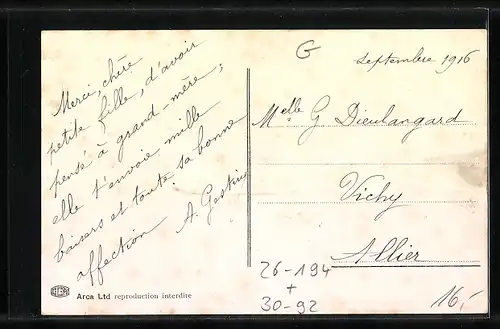 Merci, chère
petite fille, d'avoir
pensé à grand-mère;
elle t'envoie mille
baisers et toute sa bonne
affection.
A. Gestin
G
Septembre 1916
Melle G Dieulangard
Vichy
Allier
26-194
+
30-92
16,-
Arca Ltd reproduction interdite